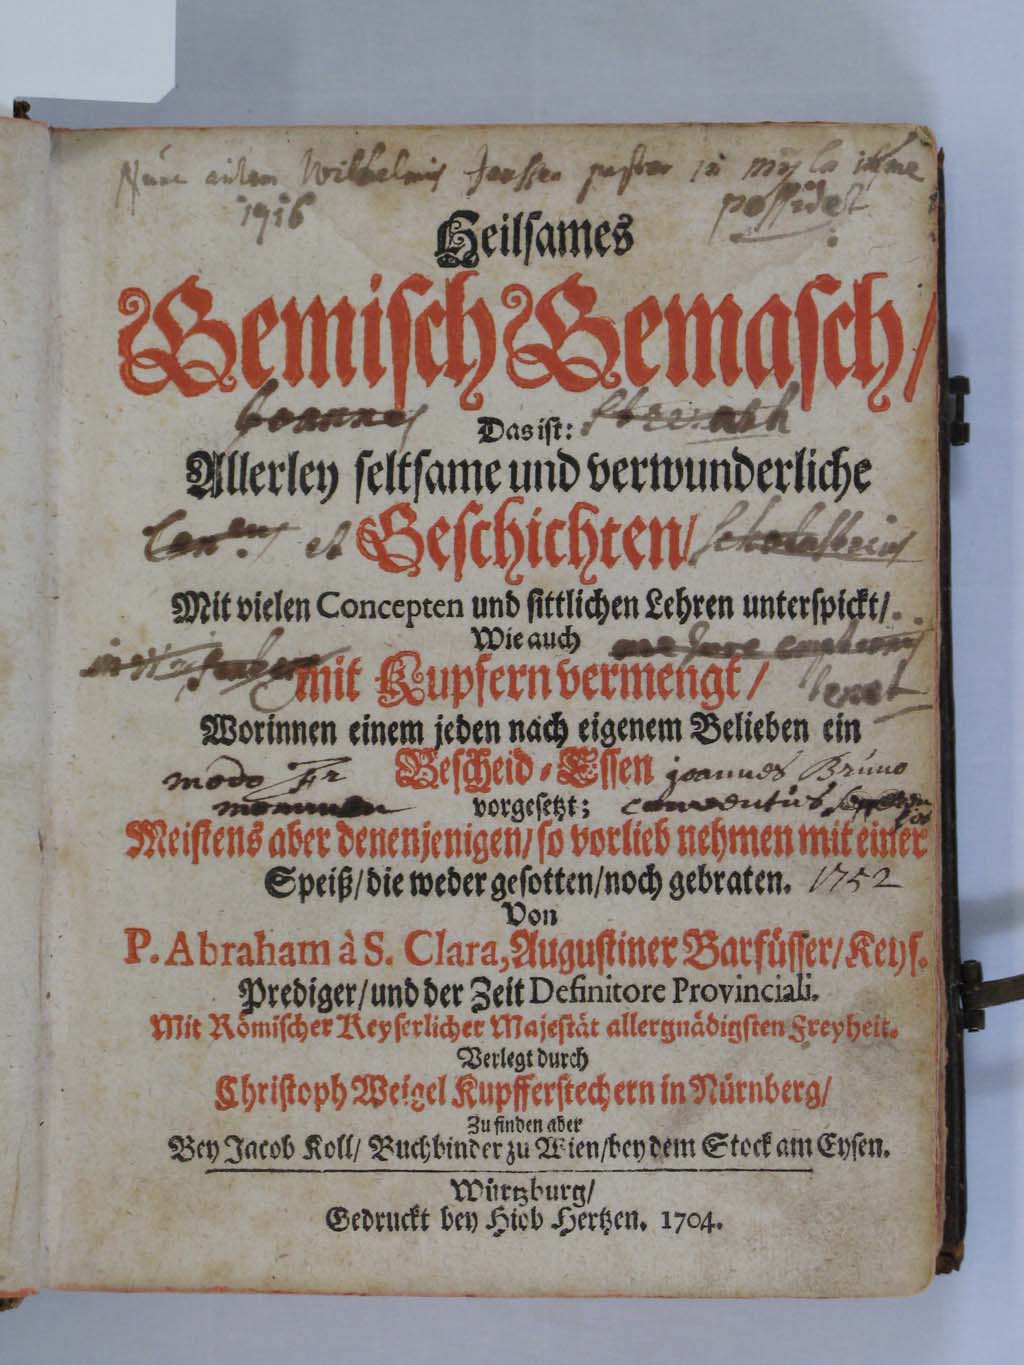 Wilhelmus Janssen pastor in
1916 possidet
Heilsames
Gemisch Gemasch/
Joannes
Das ist:
Allerley seltsame und verwunderliche
et Geschichten/ Scholasticus
Mit vielen Concepten und sittlichen Lehren unterspickt/
Wie auch
mit Kupfern vermengt/
Worinnen einem jeden nach eigenem Belieben ein
modo Fr Bescheid-Essen joannes Bruno
vorgesetzt; conventus
Meistens aber denenjenigen/ so vorlieb nehmen mit einer
Speiß/ die weder gesotten/ noch gebraten. 1752
Von
P. Abraham à S. Clara, Augustiner Barfüsser/ Keys.
Prediger/ und der Zeit Definitore Provinciali.
Mit Römischer Keyserlicher Majestät allergnädigsten Freyheit.
Verlegt durch
Christoph Weigel Kupfferstechern in Nürnberg/
Zu finden aber
Bey Jacob Koll/ Buchbinder zu Wien/ bey dem Stock am Eysen.
Würtzburg/
Gedruckt bey Hiob Hertzen. 1704.